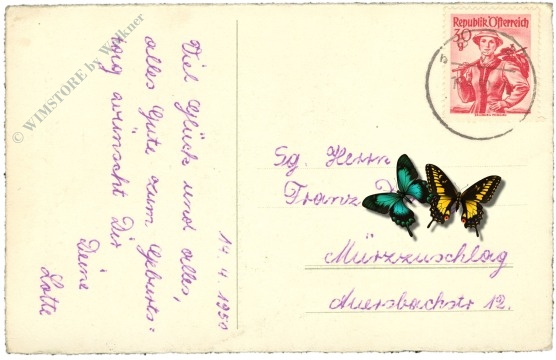 © WIMSTORE by Wolkner
Viel Glück und alles,
alles Gute zum Geburts=
tag wünscht Dir
Deine
Lotte
14.4.1950
Republik Österreich
30
Sg. Herrn
Franz
Mürzzuschlag
Auersbachstr 12.